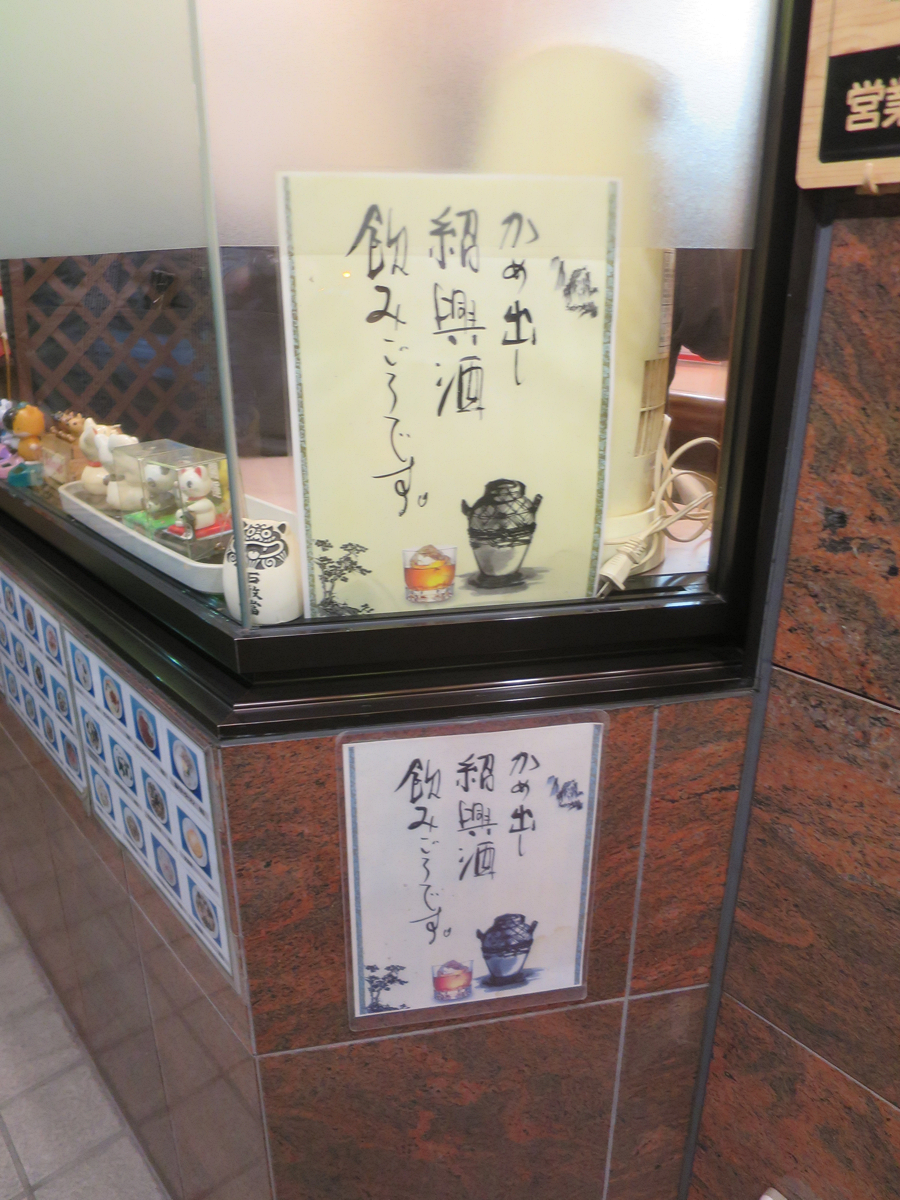 かめ出し
紹興酒
飲みごろです。
石敢當
かめ出し
紹興酒
飲みごろです。
営業